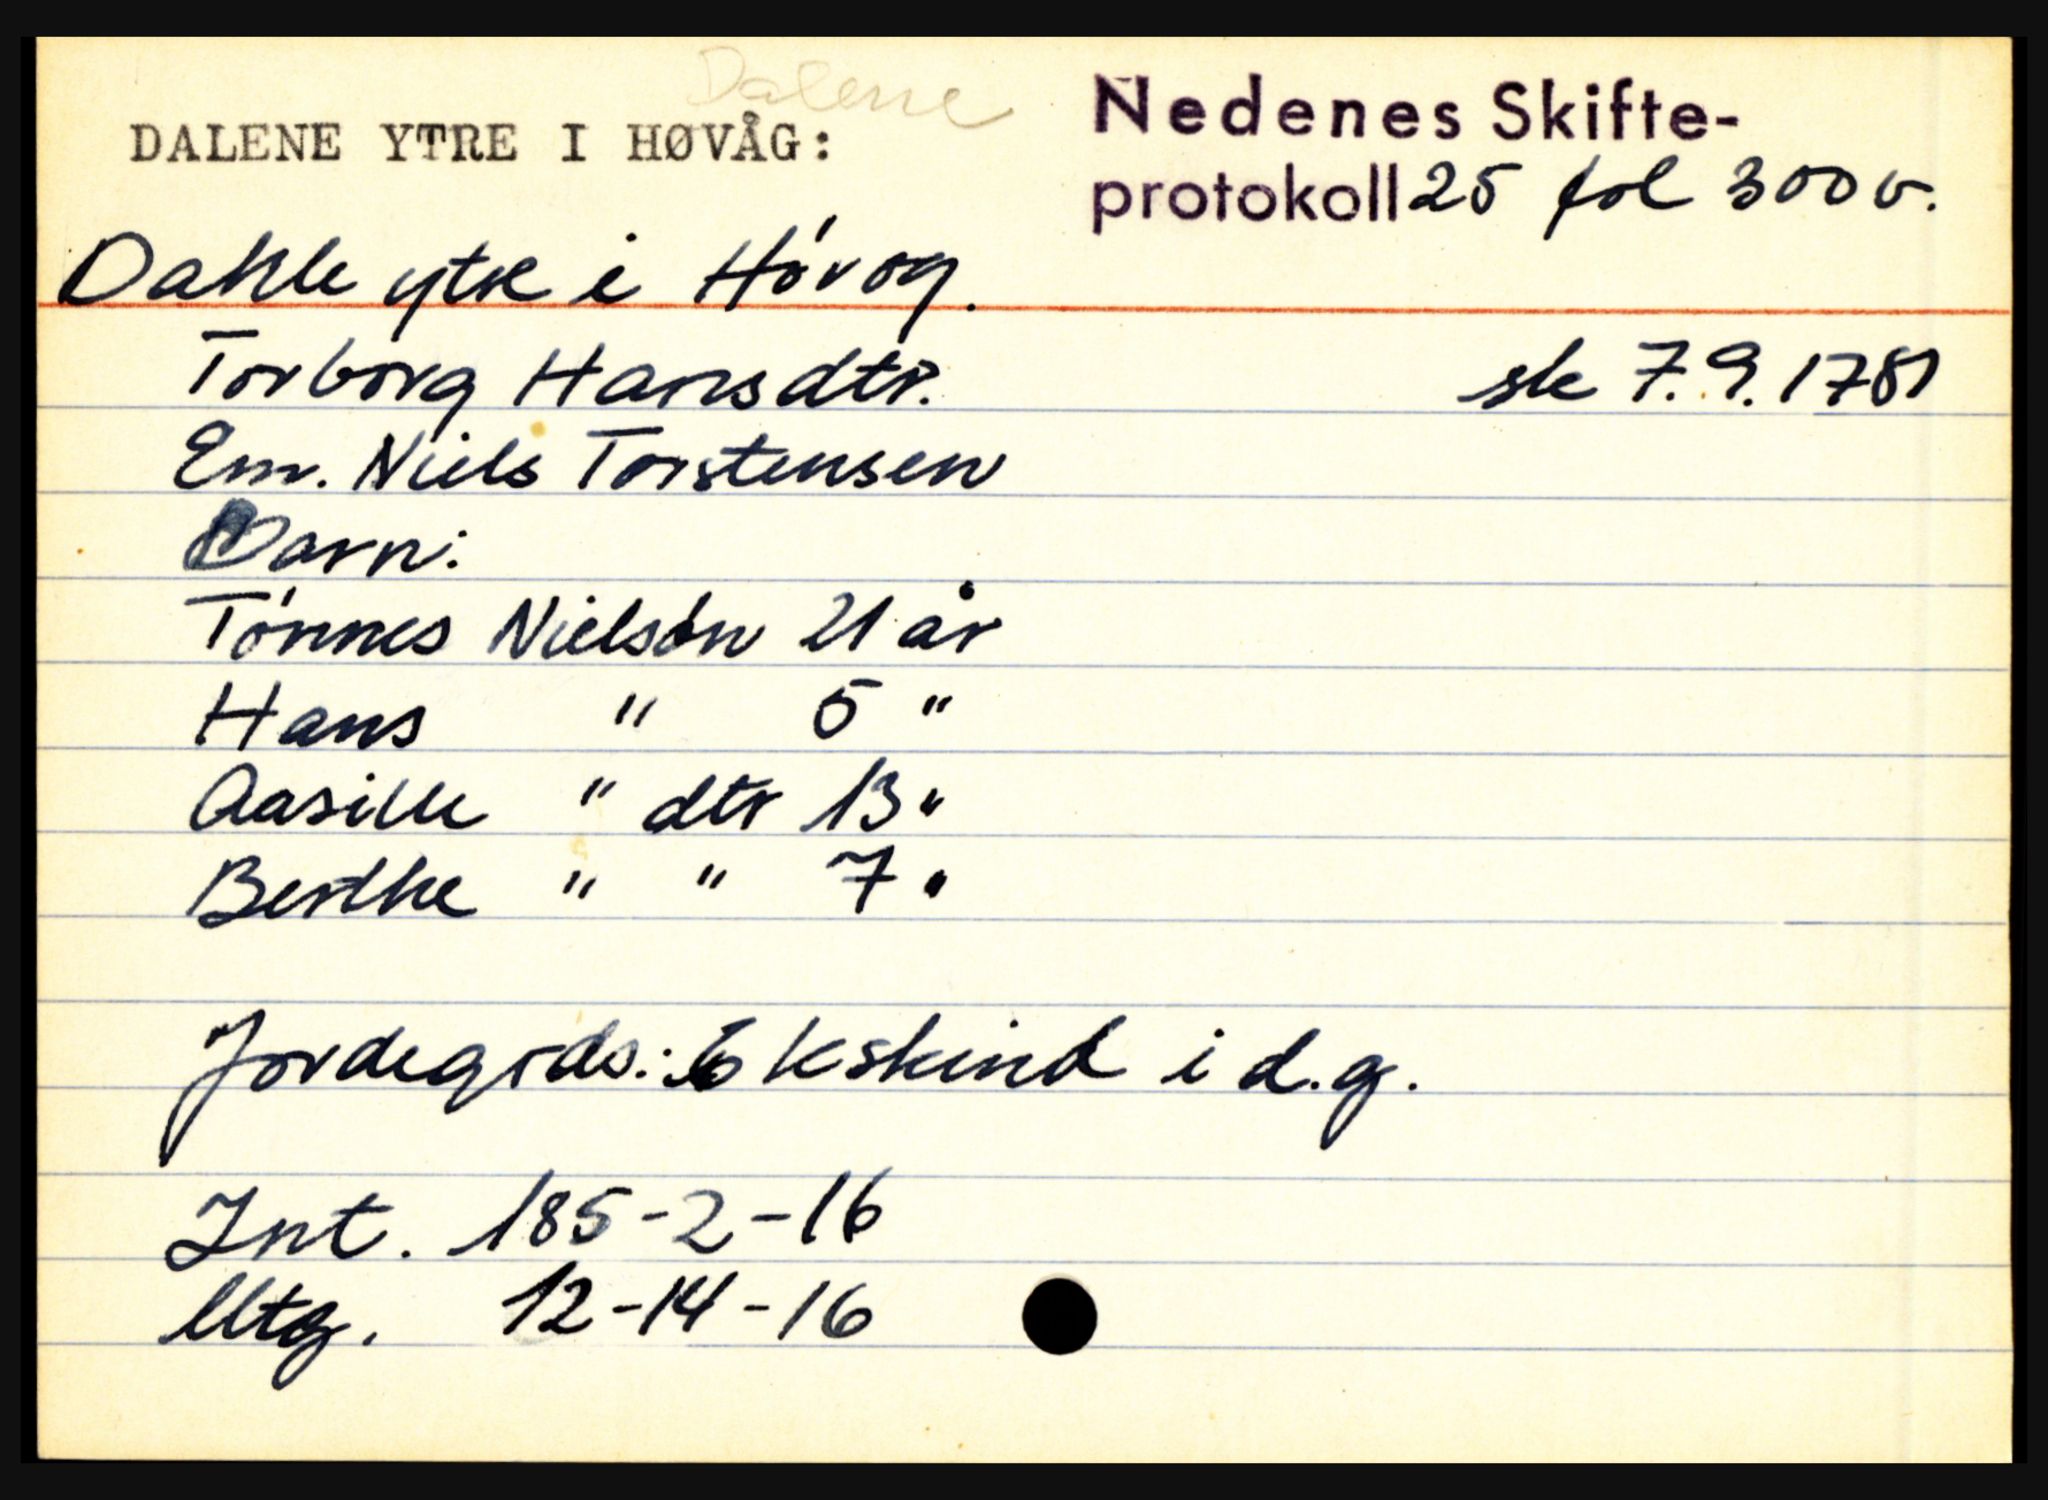 Dalene
DALENE YTRE I HØVÅG:
Nedenes Skifte-
protokoll 25 fol 300 v.
Dahle ytre i Høvog.
Torborg Hansdtr. sk 7.9.1781
Em. Niels Torstensen
Barn:
Tønnes Nielsøn 21 år
Hans " 5 "
Aasille " dtr 13 "
Berthe " " 7 "
Jordegods: 6 kskind i d.g.
Int. 185-2-16
Utg. 12-14-16